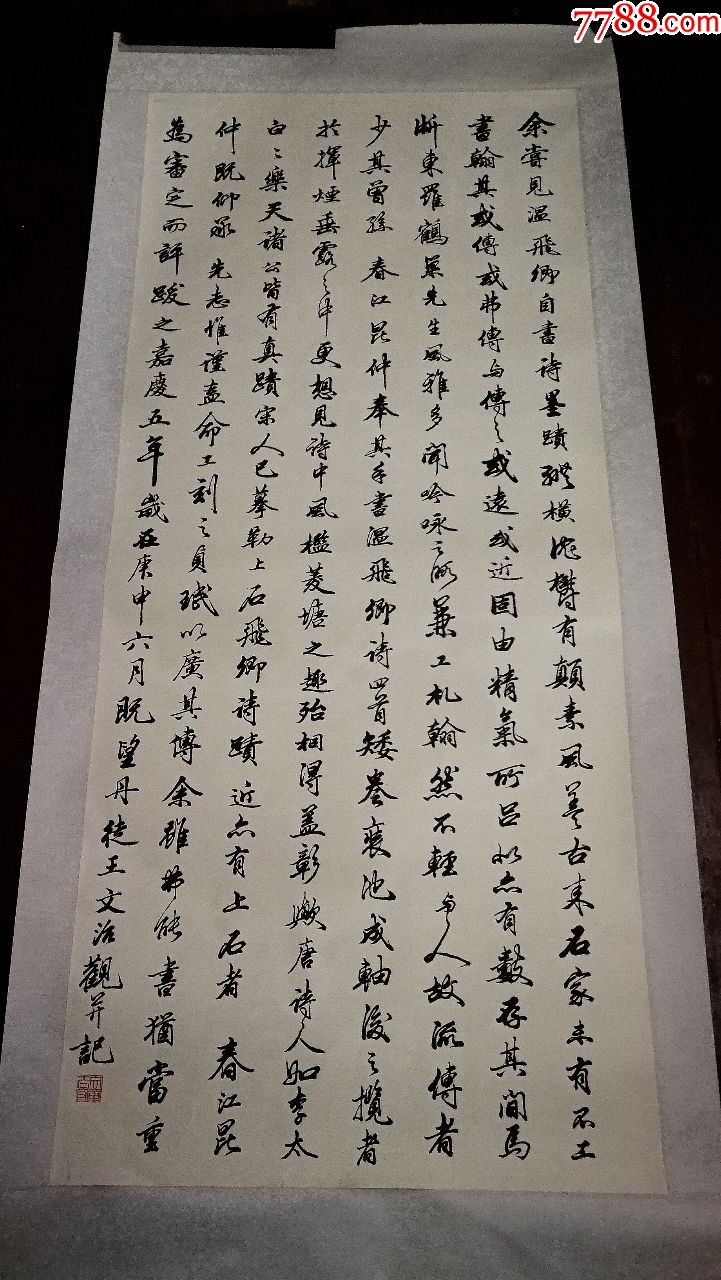 7788.com
余嘗見溫飛卿自書詩墨蹟縱橫沈鬱有顛素風蓋古來名家未有不工
書翰其或傳或弗傳與傳之或遠或近固由精氣所呂亦有數存其間焉
浙東羅鶴先生風雅多聞吟咏之所兼工札翰然不輕與人故流傳者
少其曾孫春江昆仲奉其手書溫飛卿詩四首矮卷裝池成軸後之攬者
於揮煙垂露之中更想見詩中風檻菱塘之趣殆相得益彰嫩唐詩人如李太
白白樂天諸公皆有真蹟宋人已摹勒上石飛卿詩蹟近亦有上石者春江昆
仲既仰承先志惟謹益命工刻之貞珉以廣其傳余雖弗能書猶當重
為審定而評跋之嘉慶五年歲在庚申六月既望丹徒王文治觀并記